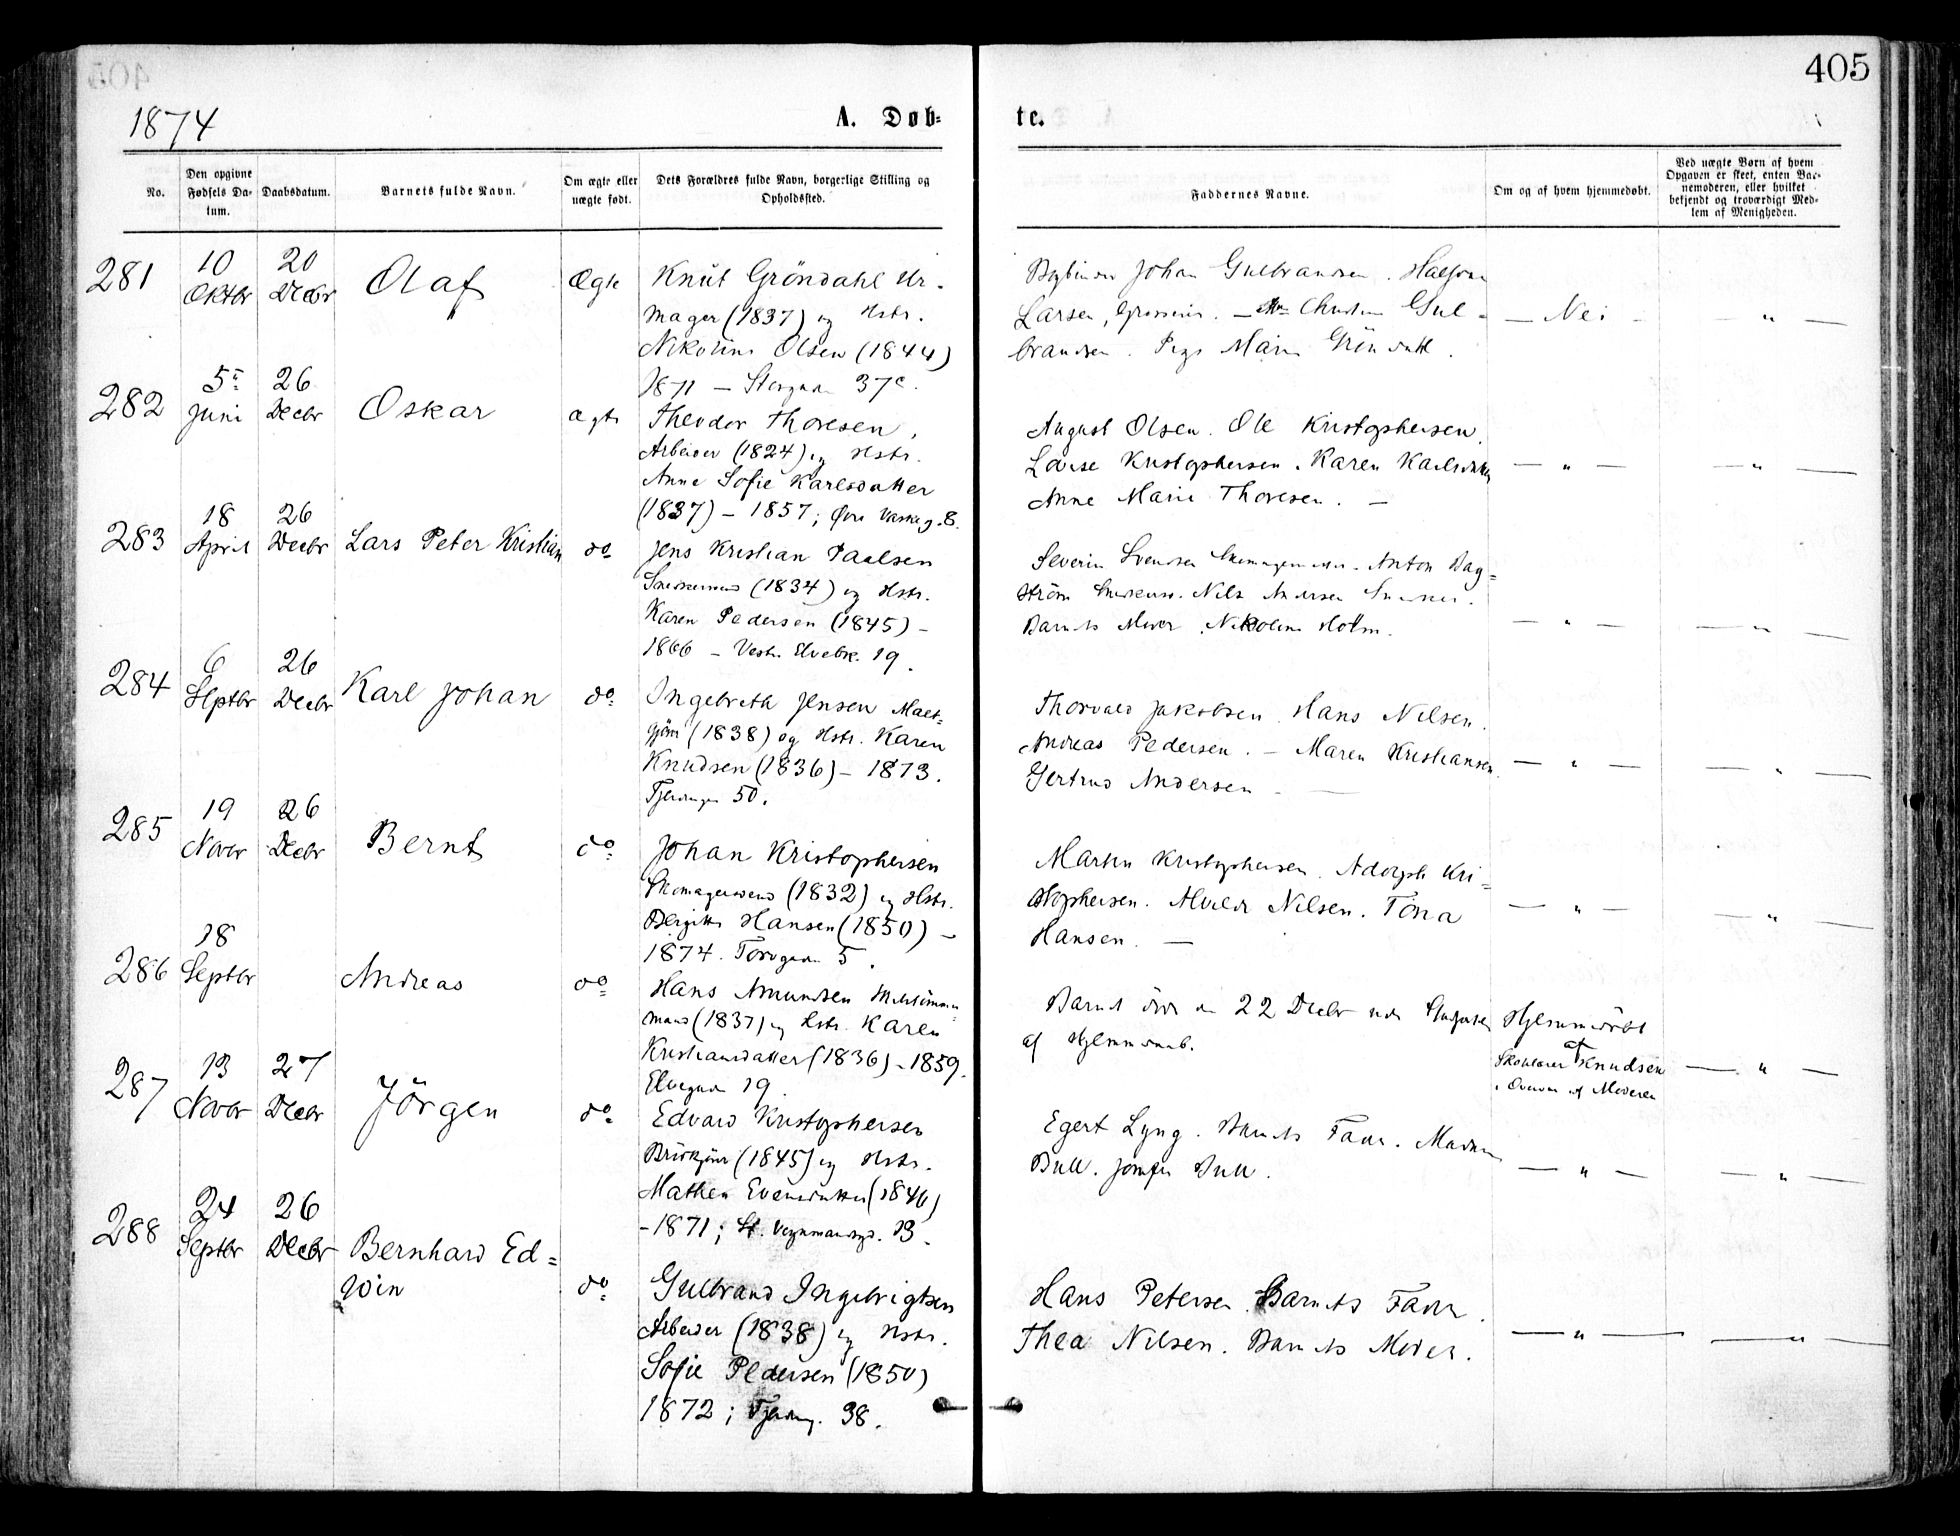 405
1874
A. Døb-
te.
No.
Den opgivne Fødsels Da-tum.
Daabsdatum.
Barnets fulde Navn.
Om ægte eller uægte født.
Dets Forældres fulde Navn, borgerlige Stilling og Opholdssted.
Faddernes Navne.
Om og af hvem hjemmedøbt.
Ved uægte Børn af hvem Opgaven er skeet, enten Bar-nemoderen, eller hvilket bekjendt og troværdigt Med-lem af Menigheden.
281
10 Oktbr
20 Decbr
Olaf
Ægte
Knut Gröndahl Ur-
mager (1837) og Hstr.
Nikoline Olsen (1844)
1871 — Storgad. 37c.
Johan Gulbrandsen. Halfvor
Larsen, — Christine Gul-
brandsen. Pige Marie Gröndahl.
— Nei — „ —
282
5te Juni
26 Decbr
Oskar
ægte
Theodor Thoresen,
Arbeider (1824) og Hstr.
Anne Sofie Karlsdatter
(1837) — 1857; Øvre Vaskeg. 8.
August Olsen. Ole Kristophersen,
Lovise Kristophersen. Karen Karlsdatter
Anne Marie Thoresen. —
— „ — — „ —
283
18 April
26 Decbr
Lars Peter Kristian
do
Jens Kristian Paulsen
Snedkersvend (1834) og Hstr.
Karen Pedersen (1845) —
1866 — Vestr. Elvebk. 19.
Severin Svendsen Skomagermester. Anton Dag-
ström Snedkersv. Nils Andersen Snedker.
Barnets Moder. Nikoline Holm.
— „ — — „ —
284
6 Septbr
26 Decbr
Karl Johan
do
Ingebreth Jensen Malt-
gjöre (1838) og Hstr. Karen
Knudsen (1836) — 1873.
Fjerdingen 50.
Thorvald Jakobsen. Hans Nilsen.
Andreas Pedersen. — Maren Kristiansen.
Gertrud Andersen —
— „ — — „ —
285
19 Novbr
26 Decbr
Bernt
do
Johan Kristophersen
Skomagersvend (1832) og Hstr.
Bergitte Hansen (1850) —
1874. Torvgaden 5.
Martin Kristophersen. Adolph Kri-
stophersen. Alvilde Nilsen. Tona
Hansen. —
— „ — — „ —
286
18 Septbr
Andreas
do
Hans Amundsen
mand (1837) og Hstr. Karen
Kristiansdatter (1836) — 1859.
Elvegaden 19.
Barnet döde den 22 Decbr
af Hjemmedaab.
Hjemmedöbt
af
Skolelærer Knudsen
i Overvær af Moderen
— „ —
287
13 Novbr
27 Decbr
Jörgen
do
Edvard Kristophersen
(1845) og Hstr.
Mathea Evensdatter (1846)
— 1871; St. Vognmandsgd. 13.
Egert Lyng. Barnets Fader. Madam
Bull. Jomfru Bull.
— „ — — „ —
288
24 Septbr
26 Decbr
Bernhard Ed-
win
do
Gulbrand Ingebrigtsen
Arbeider (1838) og Hstr.
Sofie Pedersen (1850)
1872; Fjerding. 38.
Hans Petersen. Barnets Fader.
Thea Nilsen. Barnets Moder.
— „ — — „ —